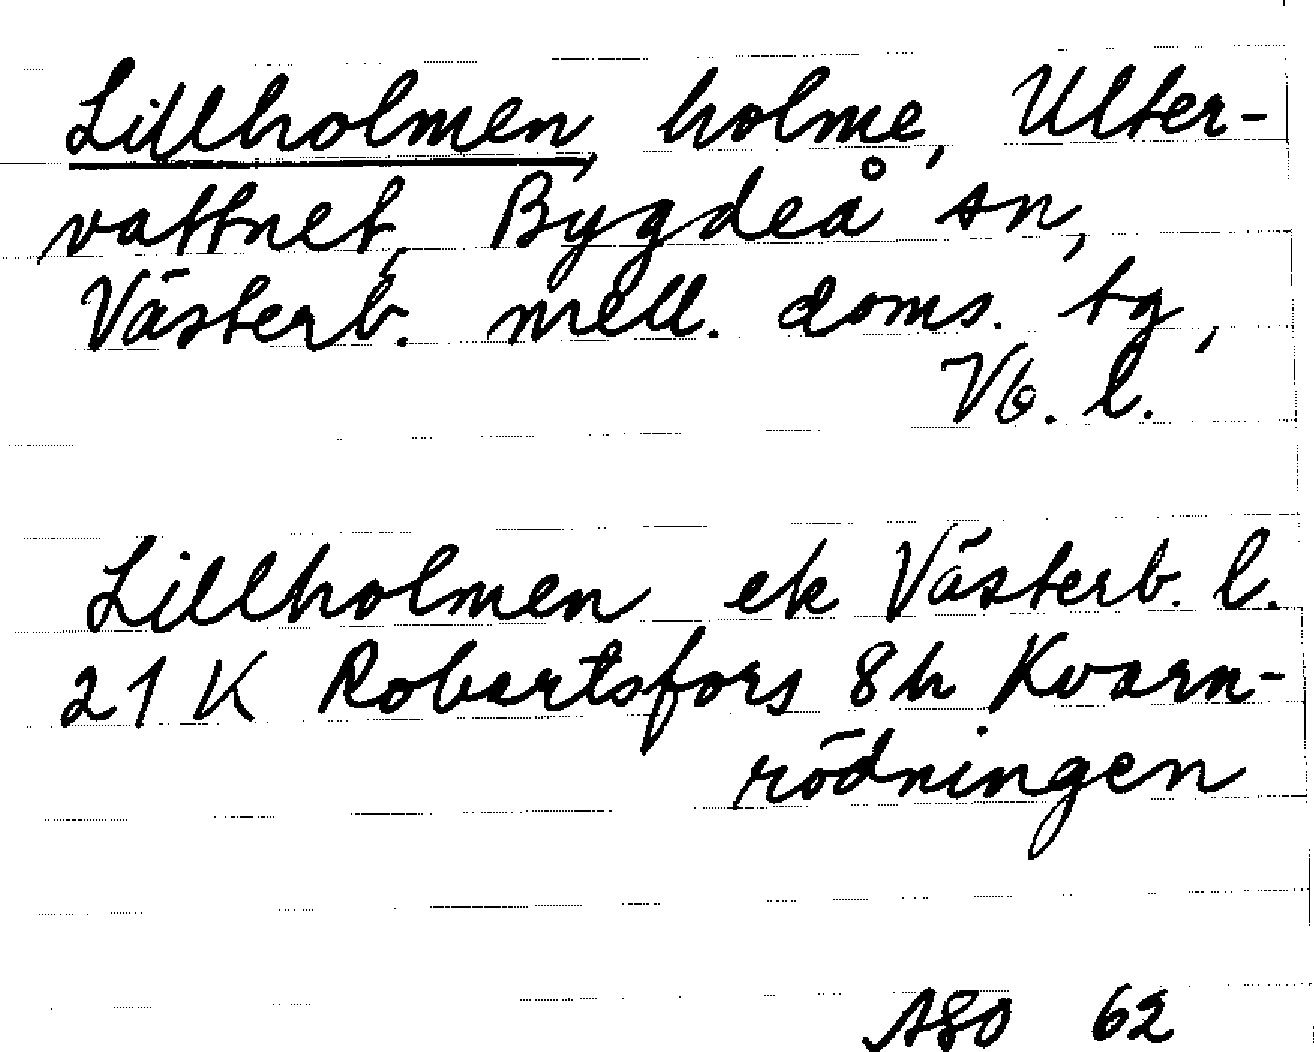 Lillholmen, holme, Ulter-
vattnet, Bygdeå sn,
Västerb. mell. doms. tg,
Vb. l.
Lillholmen ek Västerb. l.
21 K Robertsfors 8h Kvarn-
rödningen
62